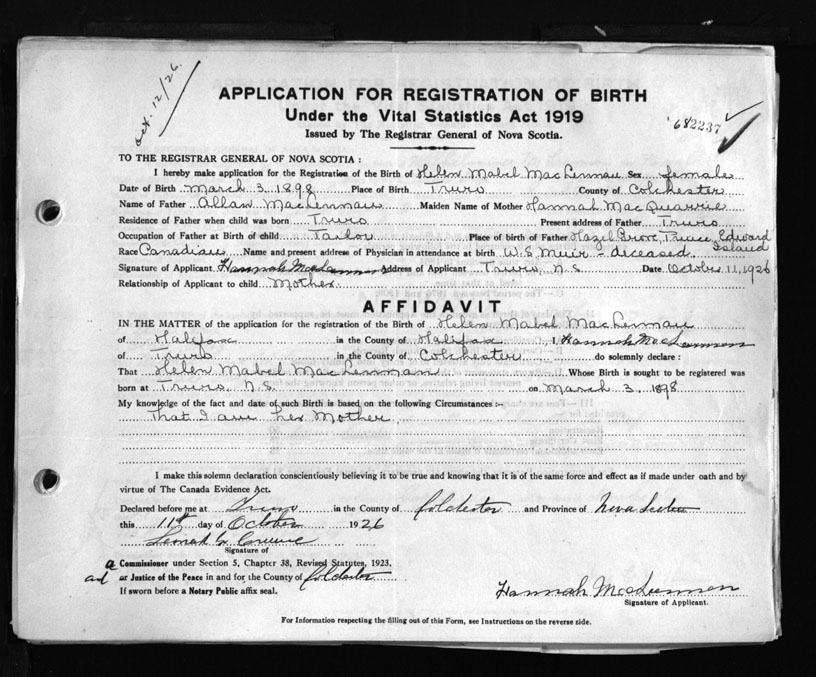 Oct. 12/26.
APPLICATION FOR REGISTRATION OF BIRTH
Under the Vital Statistics Act 1919
Issued by The Registrar General of Nova Scotia.
682237
TO THE REGISTRAR GENERAL OF NOVA SCOTIA :
I hereby make application for the Registration of the Birth of Helen Mabel MacLennan Sex female
Date of Birth March 3. 1898 Place of Birth Truro County of Colchester
Name of Father Allan MacLennan Maiden Name of Mother Hannah MacQuarrie
Residence of Father when child was born Truro Present address of Father Truro
Occupation of Father at Birth of child Tailor Place of birth of Father Hazel Grove, Prince Edward Island
Race Canadian Name and present address of Physician in attendance at birth W. S. Muir - deceased.
Signature of Applicant Hannah MacLennan Address of Applicant Truro, N. S. Date October 11, 1926
Relationship of Applicant to child Mother
AFFIDAVIT
IN THE MATTER of the application for the registration of the Birth of Helen Mabel MacLennan
of Halifax in the County of Halifax I, Hannah MacLennan
of Truro in the County of Colchester do solemnly declare :
That Helen Mabel MacLennan Whose Birth is sought to be registered was
born at Truro, N.S. on March 3, 1898
My knowledge of the fact and date of such Birth is based on the following Circumstances :-
That I am her Mother.
I make this solemn declaration conscientiously believing it to be true and knowing that it is of the same force and effect as if made under oath and by
virtue of The Canada Evidence Act.
Declared before me at Truro in the County of Colchester and Province of Nova Scotia
this 11th day of October 1926
Signature of
a Commissioner under Section 5, Chapter 38, Revised Statutes, 1923.
and or Justice of the Peace in and for the County of Colchester
If sworn before a Notary Public affix seal.
Hannah MacLennan
Signature of Applicant.
For Information respecting the filling out of this Form, see Instructions on the reverse side.